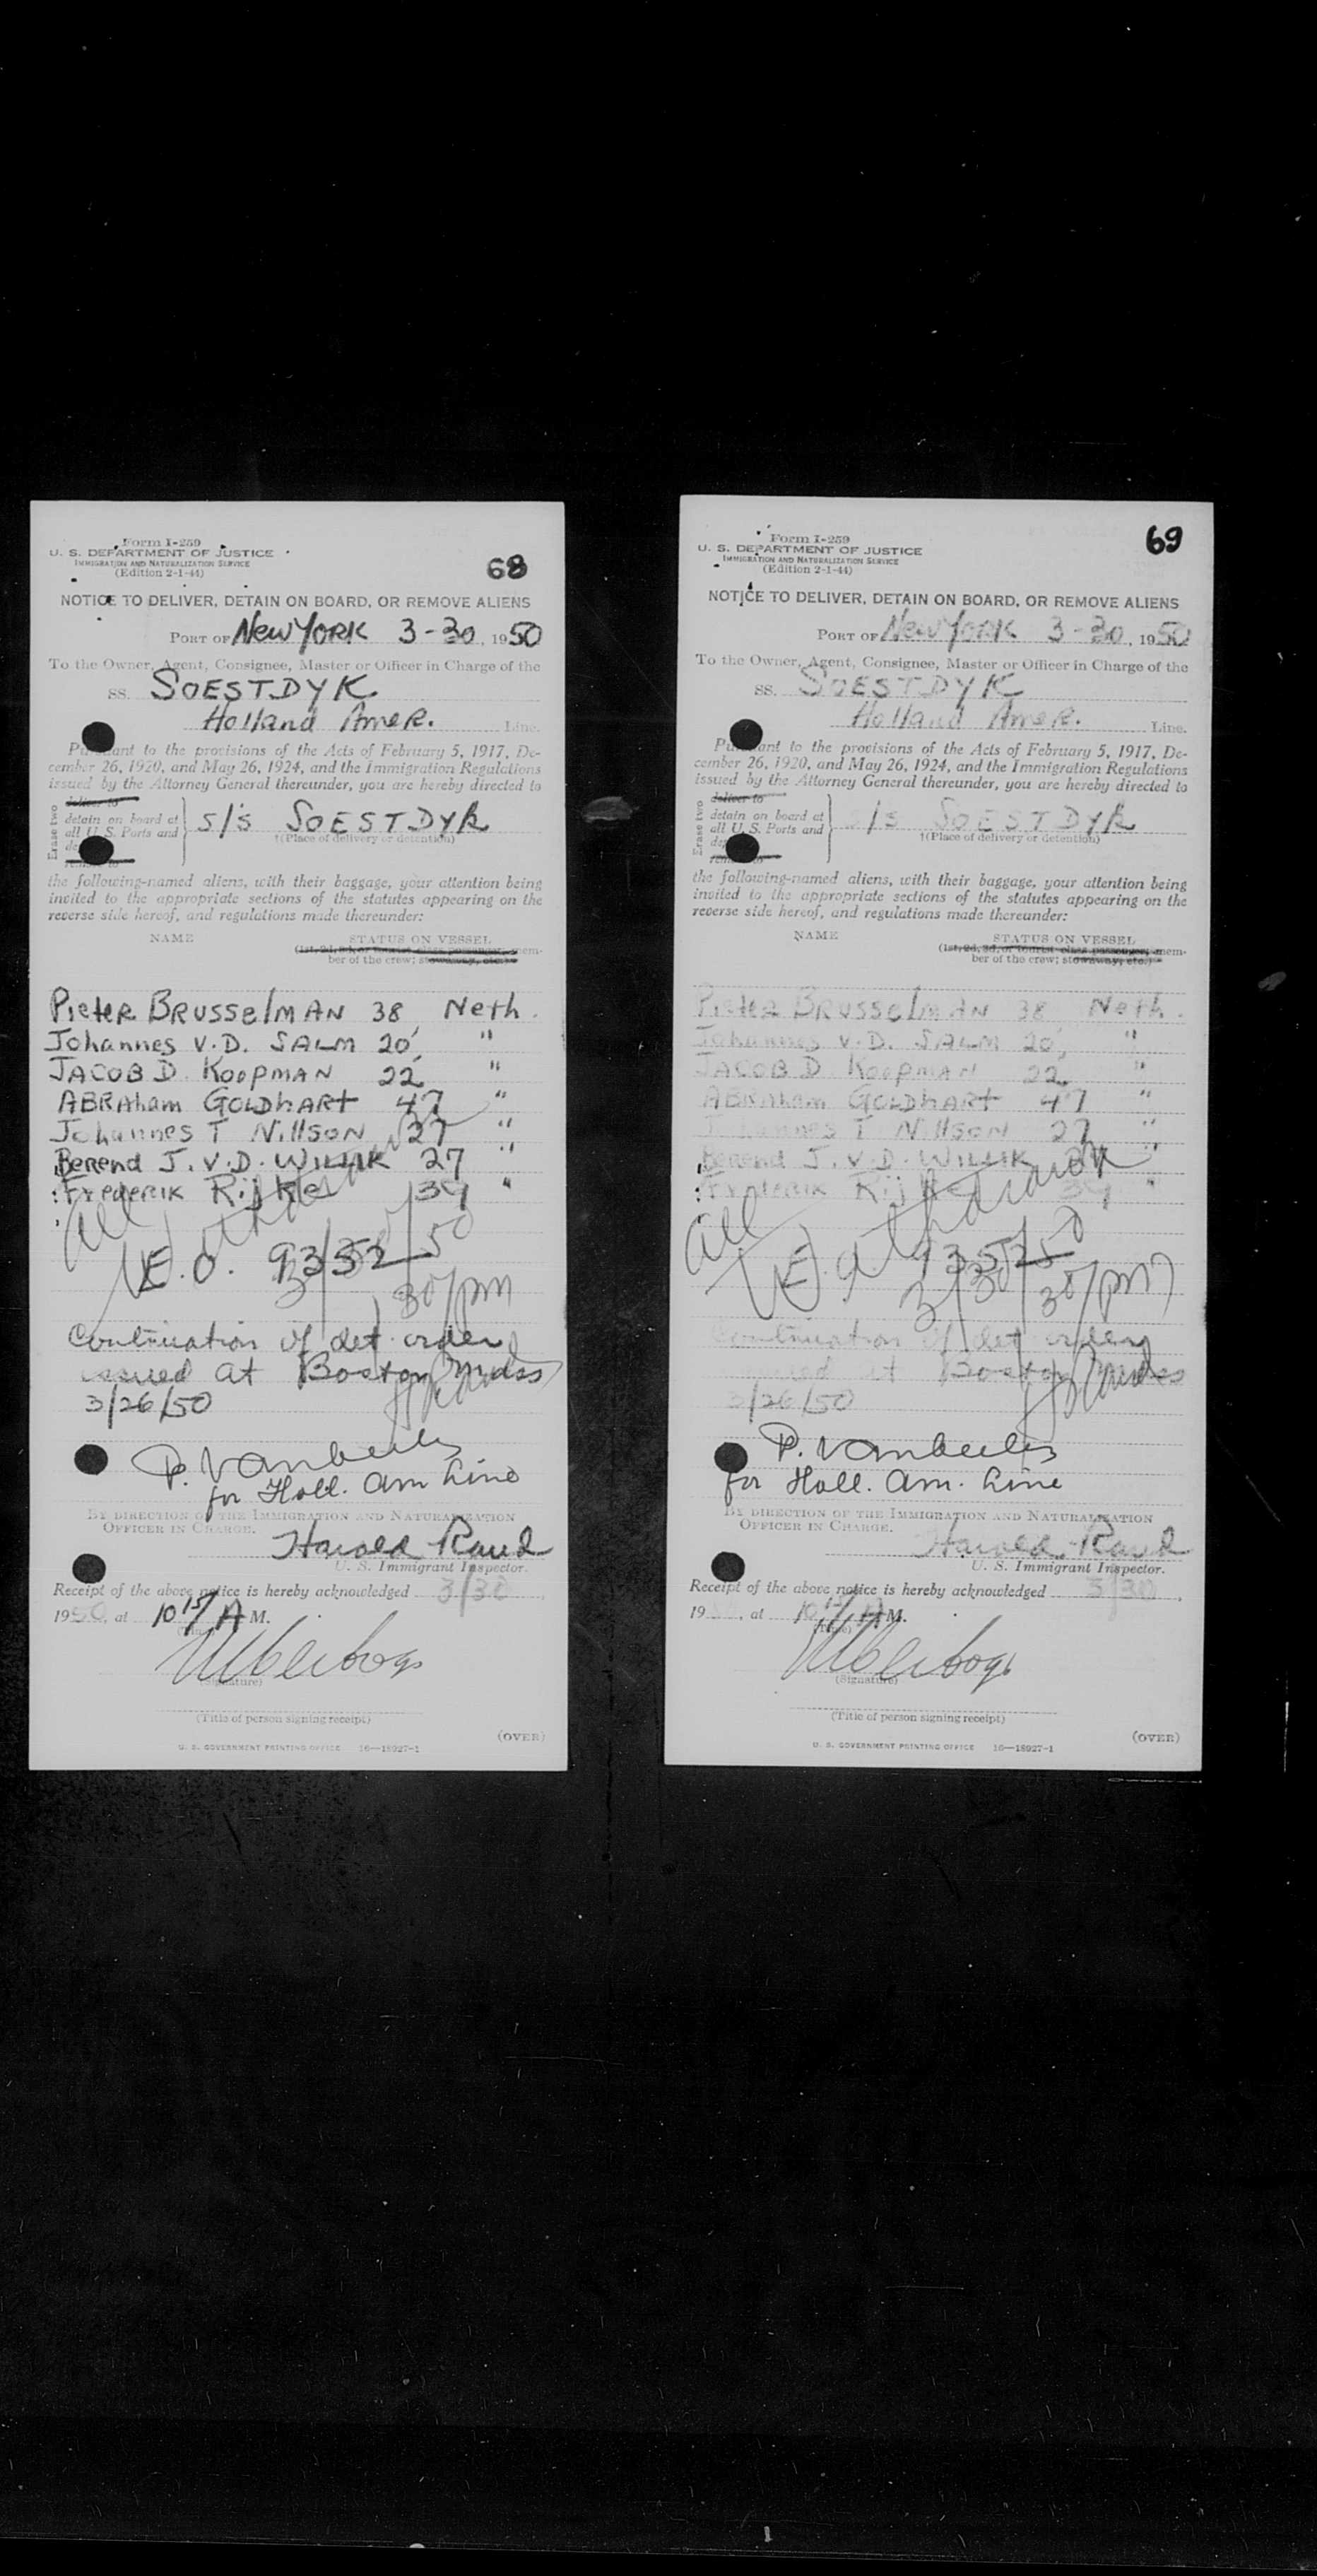 Form I-259
U. S. DEPARTMENT OF JUSTICE
IMMIGRATION AND NATURALIZATION SERVICE
(Edition 2-1-44)
68
NOTICE TO DELIVER, DETAIN ON BOARD, OR REMOVE ALIENS
PORT OF New York 3-30, 1950
To the Owner, Agent, Consignee, Master or Officer in Charge of the
SS. SOESTDYK
Holland Amer. Line.
Pursuant to the provisions of the Acts of February 5, 1917, De-
cember 26, 1920, and May 26, 1924, and the Immigration Regulations
issued by the Attorney General thereunder, you are hereby directed to
Erase two
deliver to
detain on board at
all U. S. Ports and
remove to
S/S SOESTDYK
†(Place of delivery or detention)
the following-named aliens, with their baggage, your attention being
invited to the appropriate sections of the statutes appearing on the
reverse side hereof, and regulations made thereunder:
NAME STATUS ON VESSEL
(1st, 2d, 3d, or tourist class passenger, mem-
ber of the crew; stowaway, etc.)
Pieter Brusselman 38 Neth.
Johannes v.D. Salm 20 "
Jacob D Koopman 22 "
Abraham Goldhart 47 "
Johannes T Nillson 27 "
Berend J. v.D. Willik 27 "
Frederik Rijke 39 "
all
E.O. 93352
3/30/50
1 30/pm
Continuation of det order
issued at Boston Mass
3/26/50
for Holl. Am Line
BY DIRECTION OF THE IMMIGRATION AND NATURALIZATION
OFFICER IN CHARGE.
Harold Rand
U. S. Immigrant Inspector.
Receipt of the above notice is hereby acknowledged 3/30
1950, at 10 15/ A M.
(Time)
(Signature)
(Title of person signing receipt)
(OVER)
U. S. GOVERNMENT PRINTING OFFICE 16—18927-1
Form I-259
U. S. DEPARTMENT OF JUSTICE
IMMIGRATION AND NATURALIZATION SERVICE
(Edition 2-1-44)
69
NOTICE TO DELIVER, DETAIN ON BOARD, OR REMOVE ALIENS
PORT OF New York 3-30, 1950
To the Owner, Agent, Consignee, Master or Officer in Charge of the
SS. SOESTDYK
Holland Amer. Line.
Pursuant to the provisions of the Acts of February 5, 1917, De-
cember 26, 1920, and May 26, 1924, and the Immigration Regulations
issued by the Attorney General thereunder, you are hereby directed to
Erase two
deliver to
detain on board at
all U. S. Ports and
remove to
S/S SOESTDYK
†(Place of delivery or detention)
the following-named aliens, with their baggage, your attention being
invited to the appropriate sections of the statutes appearing on the
reverse side hereof, and regulations made thereunder:
NAME STATUS ON VESSEL
(1st, 2d, 3d, or tourist class passenger, mem-
ber of the crew; stowaway, etc.)
Pieter Brusselman 38 Neth.
Johannes v.D. Salm 20, "
Jacob D Koopman 22 "
Abraham Goldhart 47 "
Johannes T Nillson 27 "
Berend J. v.D. Willik 27 "
Frederik Rijke 39 "
all
E.O. 93352
3/30/50
30/pm
Continuation of det order
issued at Boston Mass
3/26/50
for Holl. Am. Line
BY DIRECTION OF THE IMMIGRATION AND NATURALIZATION
OFFICER IN CHARGE.
Harold Rand
U. S. Immigrant Inspector.
Receipt of the above notice is hereby acknowledged 3/30,
1950, at 10 15/ A M.
(Time)
(Signature)
(Title of person signing receipt)
(OVER)
U. S. GOVERNMENT PRINTING OFFICE 16—18927-1